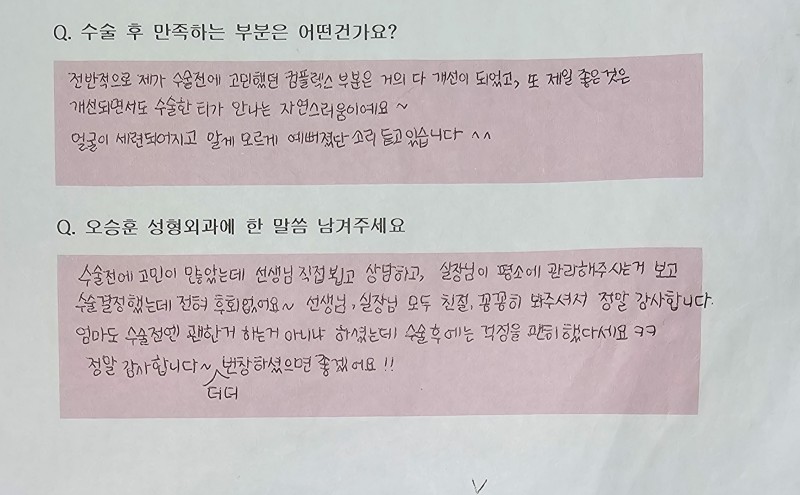 Q. 수술 후 만족하는 부분은 어떤건가요?
전반적으로 제가 수술전에 고민했던 컴플렉스 부분은 거의 다 개선이 되었고, 또 제일 좋은것은
개선되면서도 수술한 티가 안나는 자연스러움이에요~
얼굴이 세련되어지고 알게 모르게 예뻐졌단 소리 듣고있습니다 ^^
Q. 오승훈 성형외과에 한 말씀 남겨주세요
수술전에 고민이 많았는데 선생님 직접뵙고 상담하고, 실장님이 평소에 관리해주시는거 보고
수술결정했는데 전혀 후회없어요~ 선생님, 실장님 모두 친절, 꼼꼼히 봐주셔서 정말 감사합니다.
엄마도 수술전엔 괜한거 하는거 아니냐 하셨는데 수술후에는 걱정을 괜히했다세요 ㅋㅋ
정말 감사합니다~ 더더 번창하셨으면 좋겠어요!!